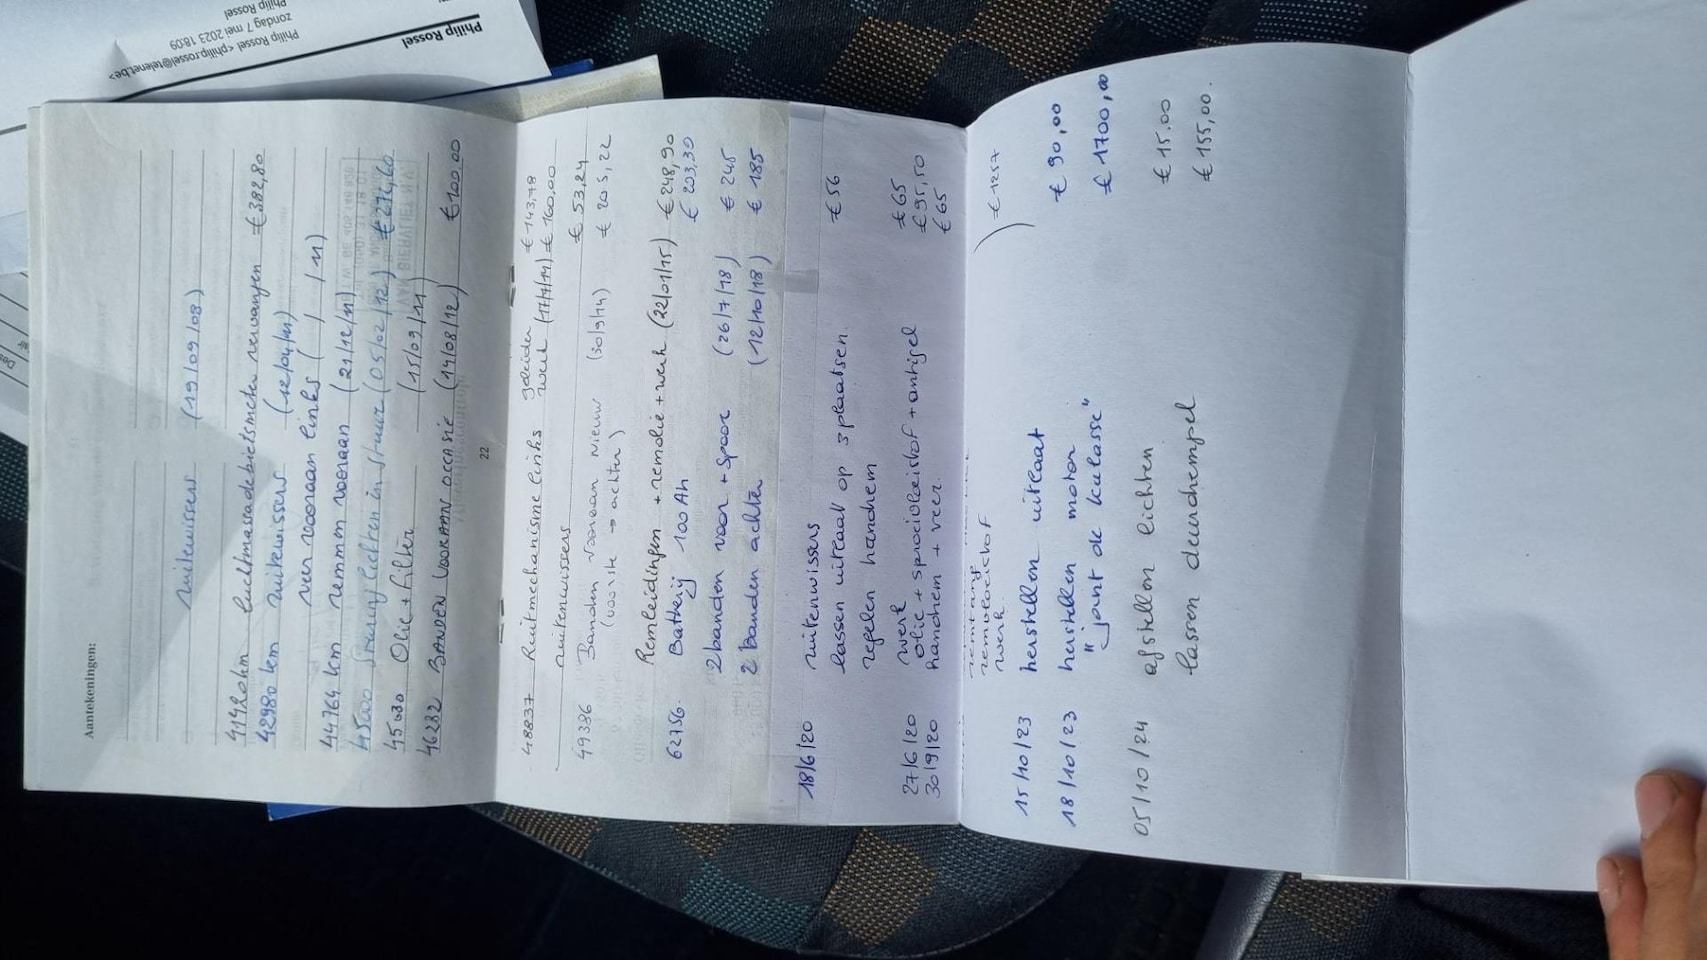 Philip Rossel
Philip Rossel <philip.rossel@telenet.be>
zondag 7 mei 2023 18:09
Philip Rossel
Aantekeningen:
ruitewissers (19/09/08)
luchtmassadebietsmeter vervangen €382,80
42980 km ruitewissers
veer vooraan links ( / /11)
44764 km remmen vooraan (21/12/11)
45000 lichten in stuur (05/02/12)
Olie + filter (15/09/11)
46232 BANDEN VOORAAN OCCASIE (14/08/12) €100.00
22
48837 Ruitmechanisme links geleider €143,78
werk (17/7/14) €160,00
ruitenwissers € 53,24
49386 Banden vooraan nieuw (30/9/14) € 205,22
(voorste → achter)
Remleidingen + remolie + werk (22/01/15) € 248,90
62756. Batterij 100 Ah € 203,39
2 banden voor + spoor (26/7/18) € 245
2 banden achter (12/10/18) € 185
18/6/20 ruitenwissers €56
lassen uitlaat op 3 plaatsen.
regelen handrem
werk €65
27/6/20 olie + sproeivloeistof + antigel €95,50
30/9/20 handrem + veer. €65
remvloeistof
werk
) €1257
15/10/23 herstellen uitlaat € 90,00
18/10/23 herstellen motor € 1700,00
"joint de kulasse"
05/10/24 afstellen lichten € 15.00
lassen deurdrempel € 155,00.